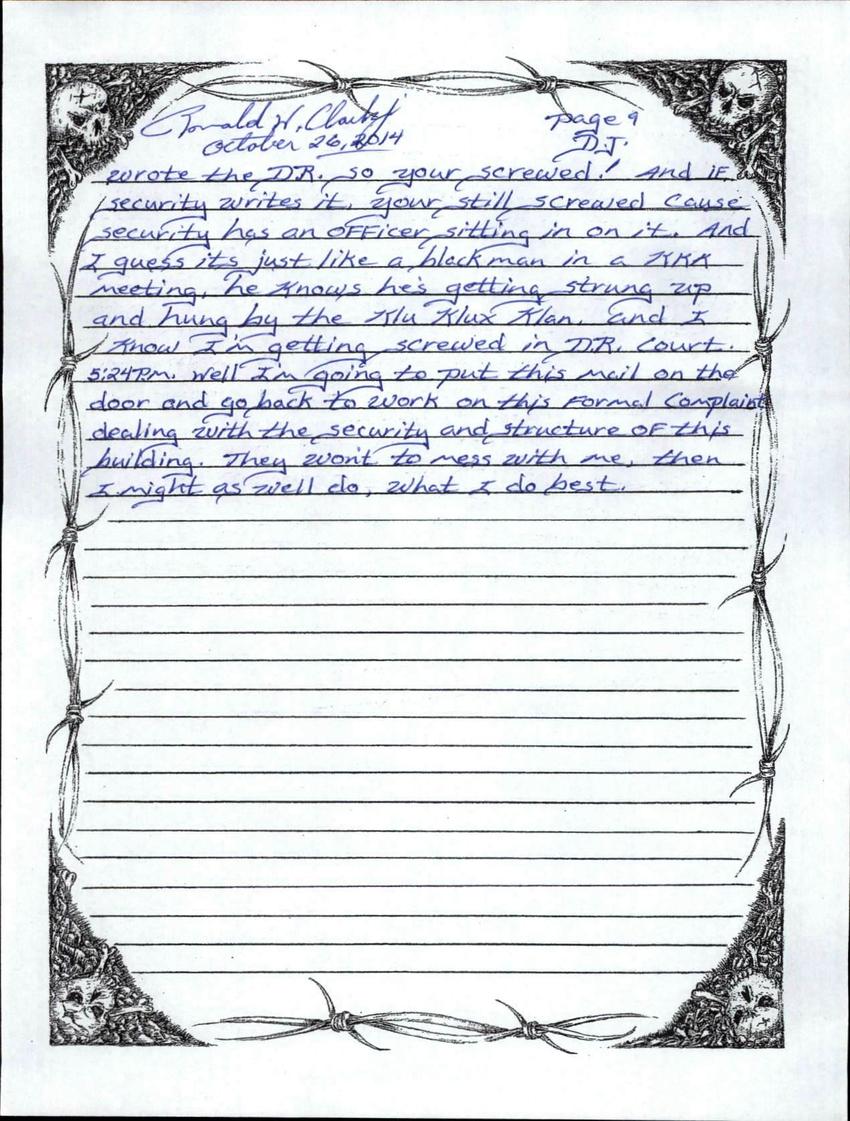 Ronald W. Clark Jr page 9
October 26, 2014 D.J.
wrote the D.R. so your screwed! And if
security writes it, your still screwed cause
security has an officer sitting in on it. And
I guess its just like a black man in a KKK
meeting, he knows he's getting strung up
and hung by the Klu Klux Klan, and I
know I'm getting screwed in D.R. court.
5:24P.M. Well I'm going to put this mail on the
door and go back to work on this Formal Complaint
dealing with the security and structure of this
building. They wont to mess with me, then
I might as well do, what I do best.